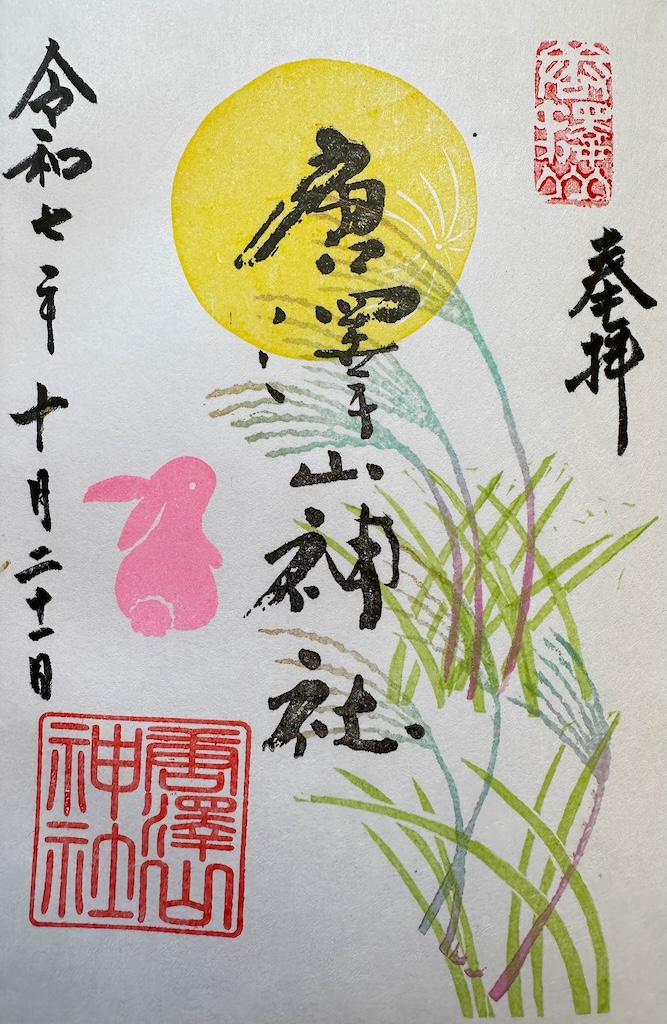 唐澤山
奉拝
唐澤山神社
令和七年十月二十一日
唐澤山
神社